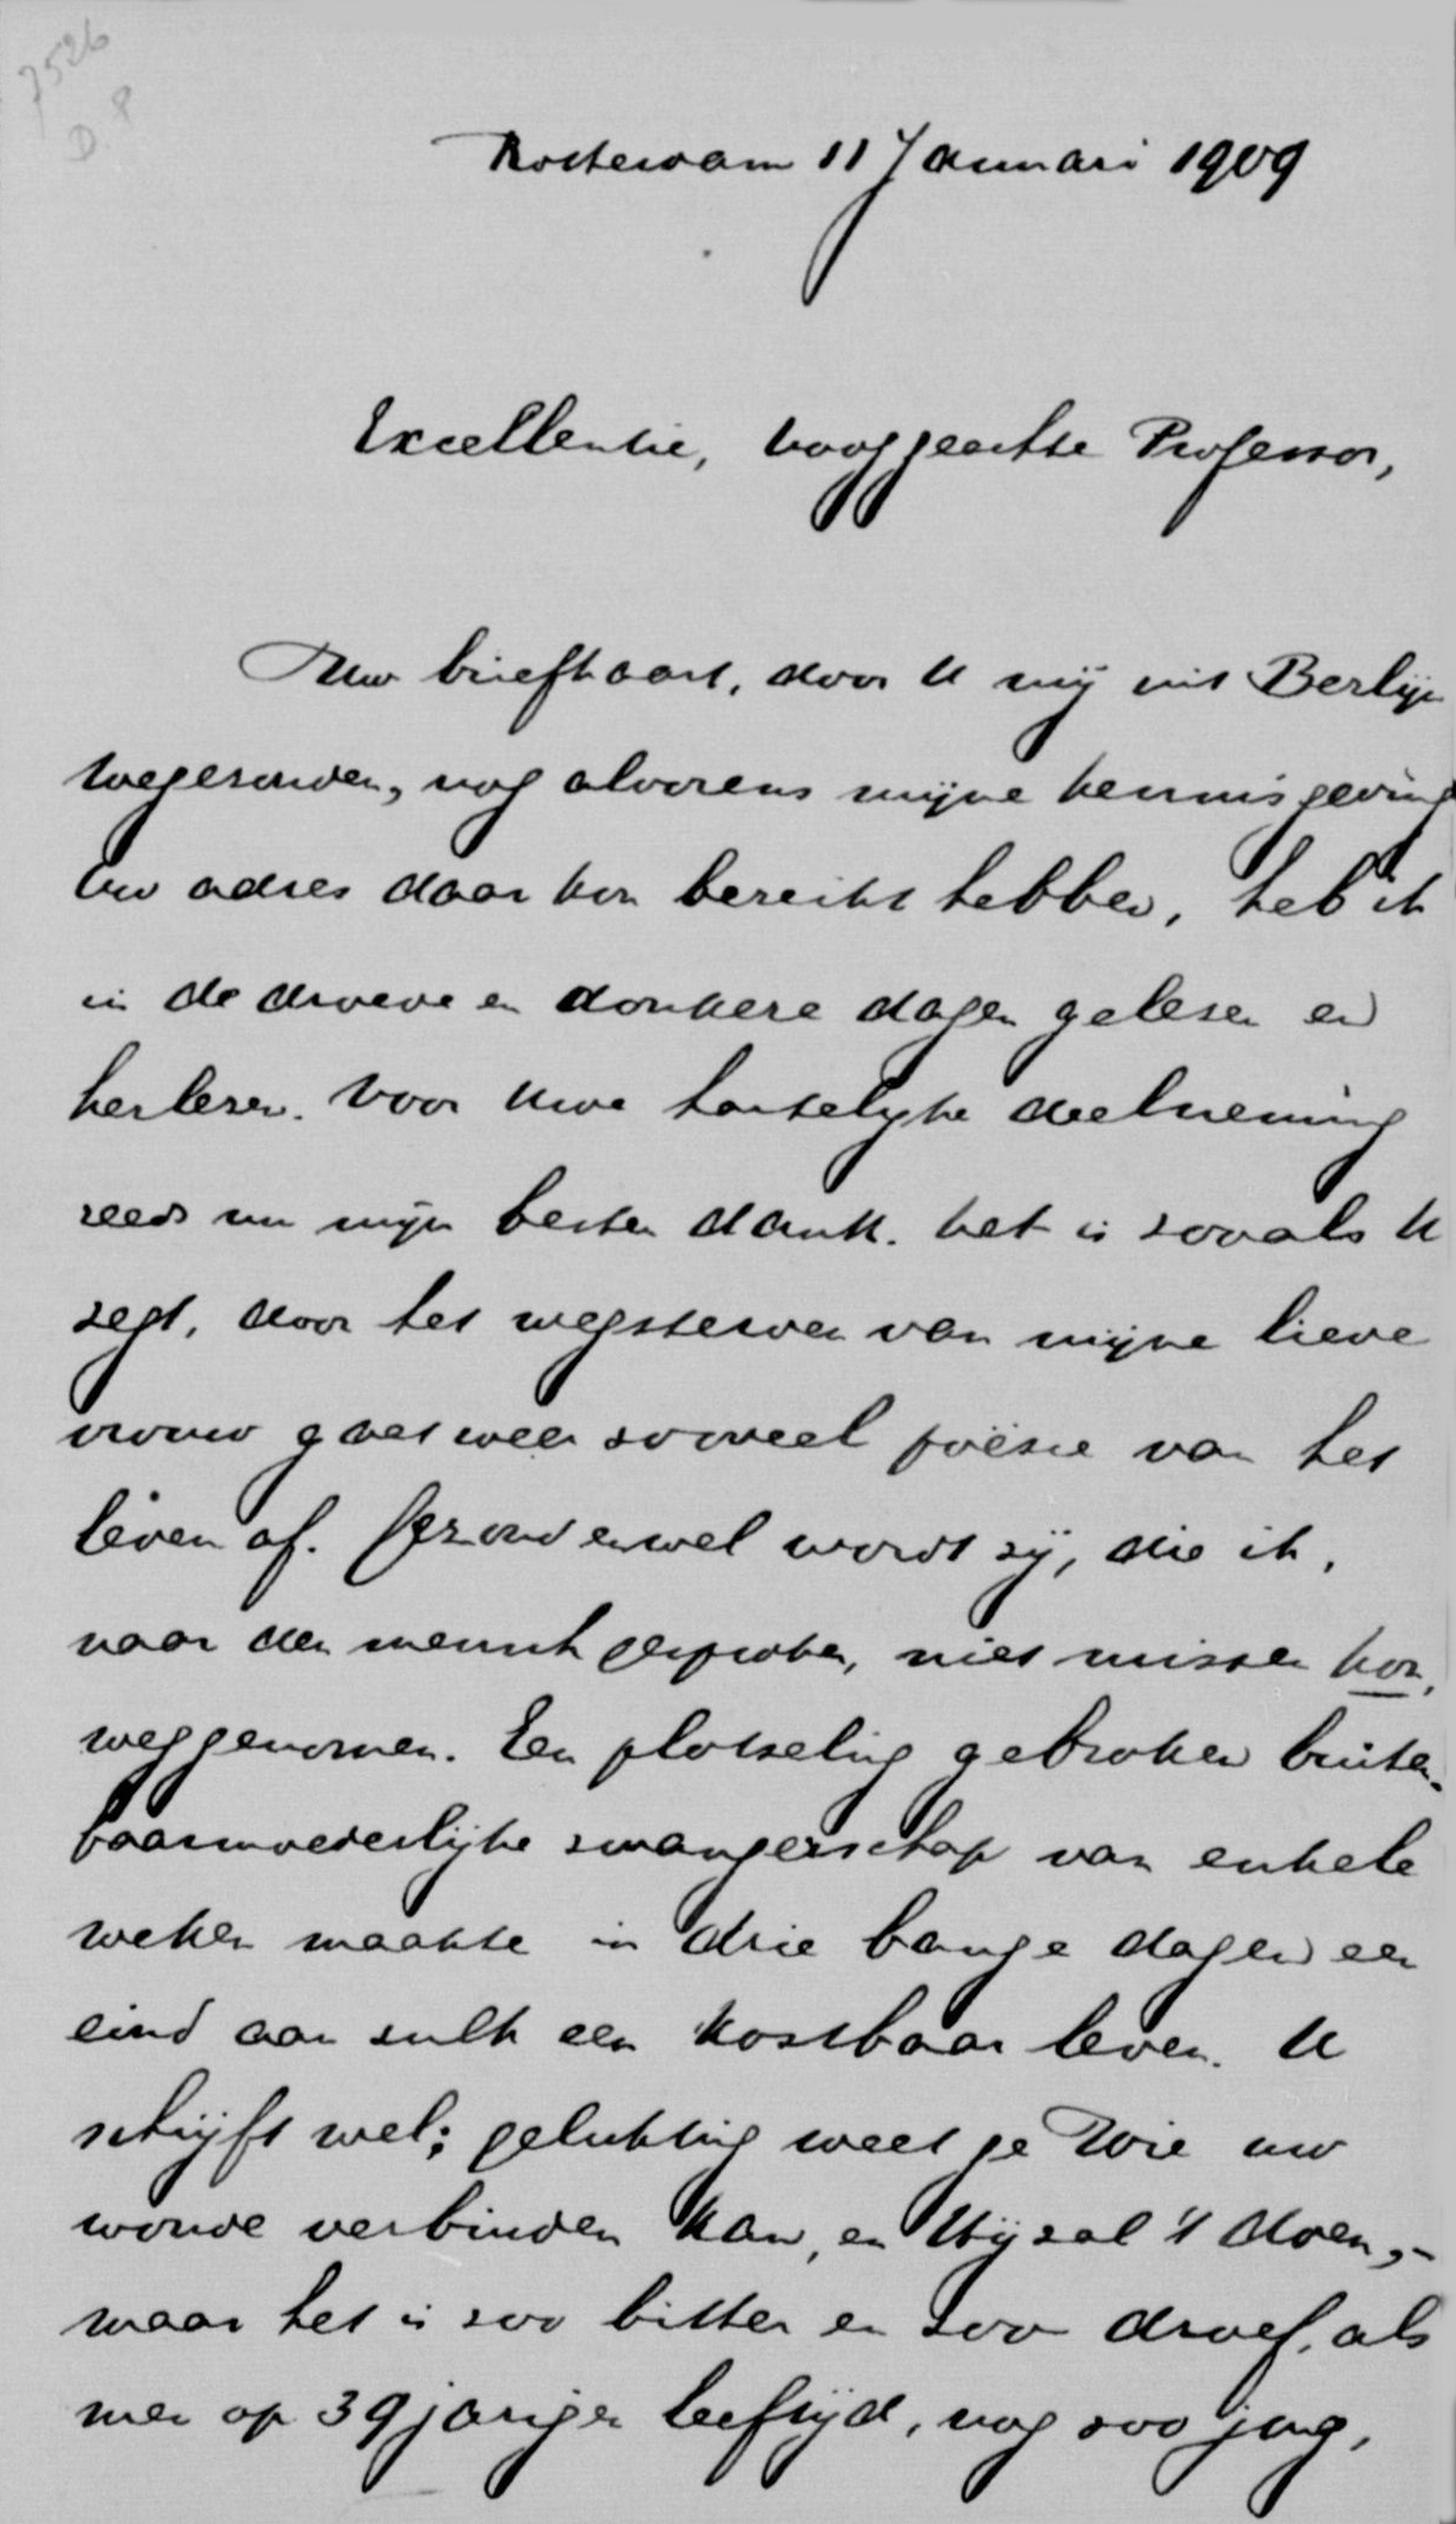 7526
D. P
Rotterdam 11 Januari 1909
Excellentie, hooggeachte Professor,
Uw briefkaart, door U mij uit Berlijn
toegezonden, nog alvorens mijne kennisgeving
Uw adres daar kon bereikt hebben, heb ik
in de droeve en donkere dagen gelezen en
herlezen. Voor Uwe hartelijke deelneming
reeds nu mijn besten dank. Het is zooals U
zegt, door het wegsterven van mijne lieve
vrouw gaat weer zooveel poëzie van het
leven af. Gezond en wel wordt zij, die ik,
naar den mensch gesproken, niet missen kon,
weggenomen. Een plotseling gebroken buiten-
baarmoederlijke zwangerschap van enkele
weken maakte in drie bange dagen een
eind aan zulk een kostbaar leven. U
schrijft wel: gelukkig weet ge Wie uw
wonde verbinden kan, en Hij zal 't doen, -
maar het is zoo bitter en zoo droef, als
men op 39 jarigen leeftijd, nog zoo jong,